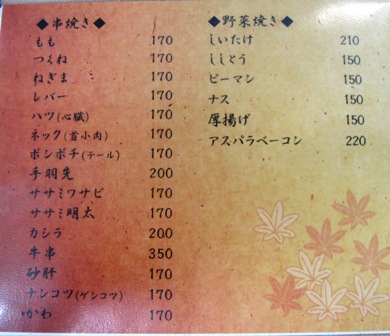 ◆串焼き◆
もも 170
つくね 170
ねぎま 170
レバー 170
ハツ(心臓) 170
ネック(首小肉) 170
ボンボチ(テール) 170
手羽先 200
ササミワサビ 170
ササミ明太 170
カシラ 200
牛串 350
砂肝 170
ナンコツ(ゲンコツ) 170
かわ 170
◆野菜焼き◆
しいたけ 210
ししとう 150
ピーマン 150
ナス 150
厚揚げ 150
アスパラベーコン 220